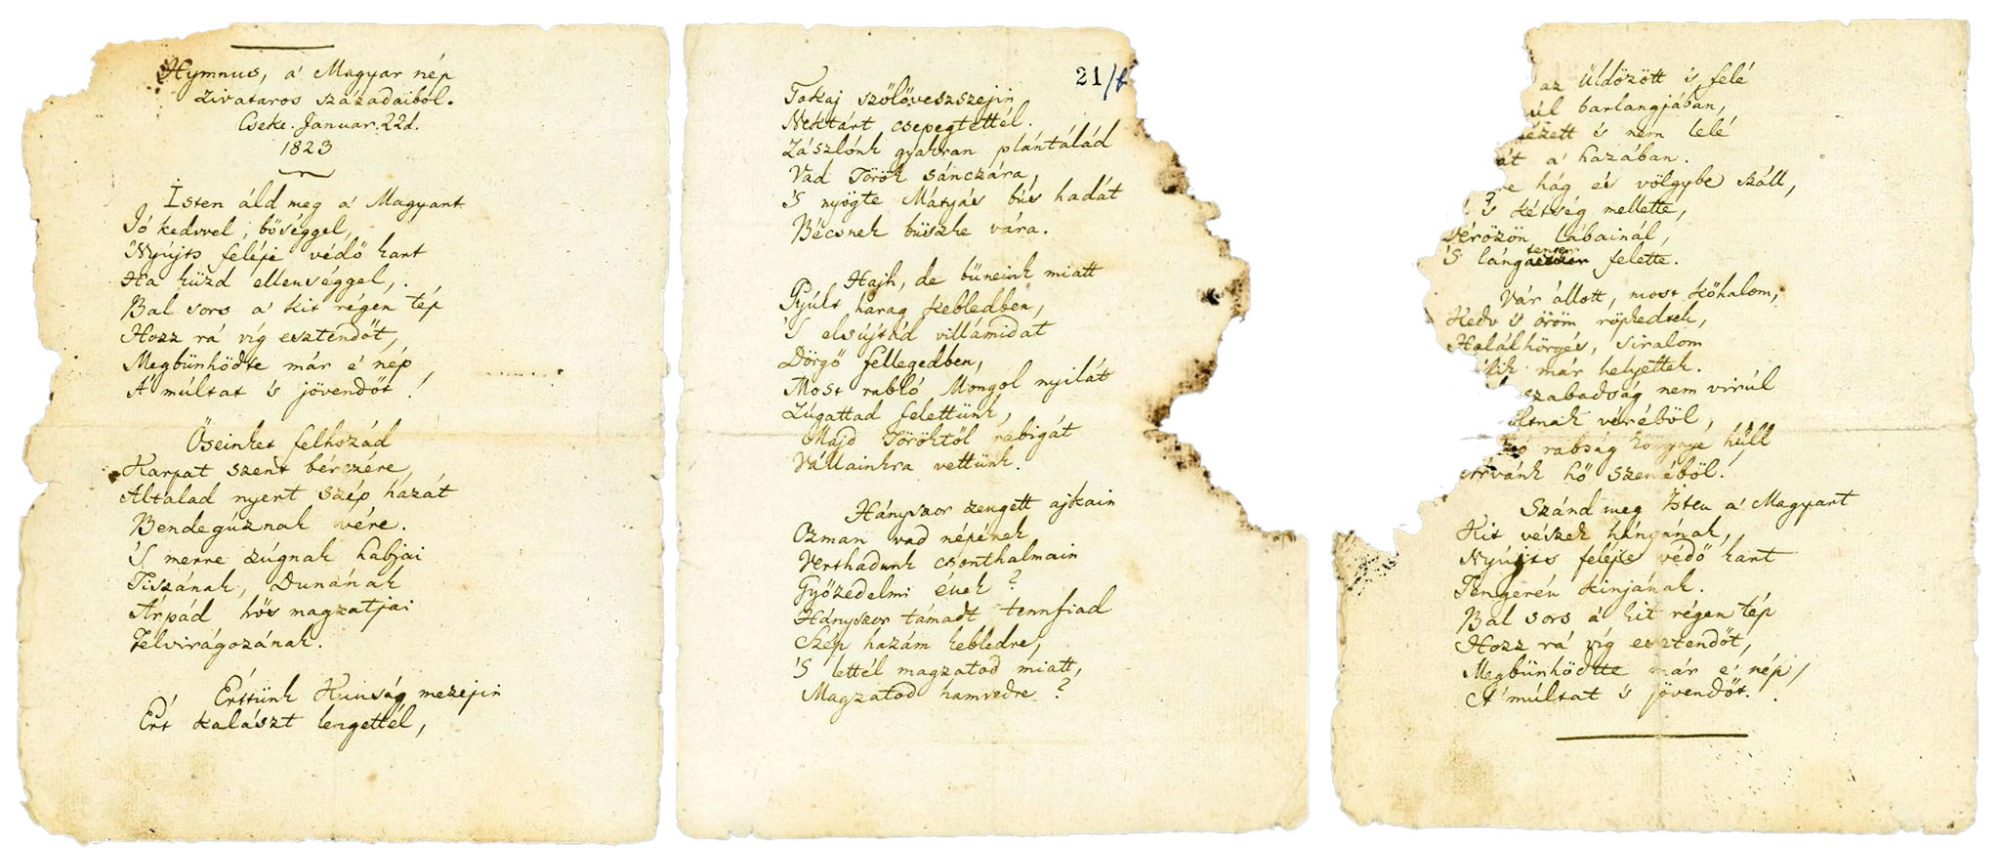 Hymnus, a' Magyar nép
zivataros századaiból.
Cseke. Januar. 22d.
1823
Isten áld meg a' Magyart
Jó kedvvel, bőséggel,
Nyújts feléje védő kart
Ha küzd ellenséggel,
Bal sors a' kit régen tép
Hozz rá víg esztendőt,
Megbűnhödte már e' nép
A' múltat 's jövendőt!
Őseinket felhozád
Kárpát szent bérczére,
Általad nyert szép hazát
Bendegúznak vére.
'S merre zúgnak habjai
Tiszának, Dunának
Árpád hős magzatjai
Felvirágozának.
Értünk Kunság mezejin
Ért kalászt lengettél,
21/b
Tokaj szőlővesszejin
Nektárt csepegtettél.
Zászlónk gyakran plántálád
Vad Török sánczára,
'S nyögte Mátyás bús hadát
Bécsnek büszke vára.
Hajh, de bűneink miatt
Gyúlt harag kebledben,
'S elsújtád villámidat
Dörgő fellegedben,
Most rabló Mongol nyilát
Zúgattad felettünk,
Majd Töröktől rabigát
Vállainkra vettünk.
Hányszor zengett ajkain
Ozman vad népének
Vert hadunk csonthalmain
Győzedelmi ének?
Hányszor támadt tennfiad
Szép hazám kebledre,
'S lettél magzatod miatt,
Magzatod hamvedre?
az Üldözött 's felé
barlangjában,
's nem lelé
a' hazában.
hág és völgybe száll,
's kétség mellette,
Vérözön lábainál,
'S lángtenger felette.
Vár állott, most kőhalom,
Kedv 's öröm röpkedtek,
Halálhörgés, siralom
már helyettek.
szabadság nem virúl
véréből,
rabság könnye hull
Árvánk hő szeméből.
Szánd meg Isten a' Magyart
Kit vészek hányának,
Nyújts feléje védő kart
Tengerén kínjának.
Bal sors a' kit régen tép
Hozz rá víg esztendőt,
Megbűnhödte már e' nép,
A' múltat 's jövendőt.